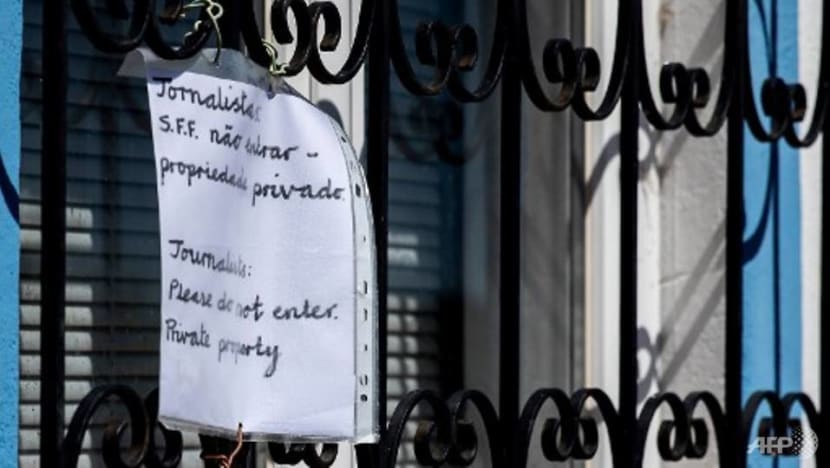 Jornalistas
S.F.F. não entrar -
propriedade privado.
Journalists:
Please do not enter.
Private property
AFP